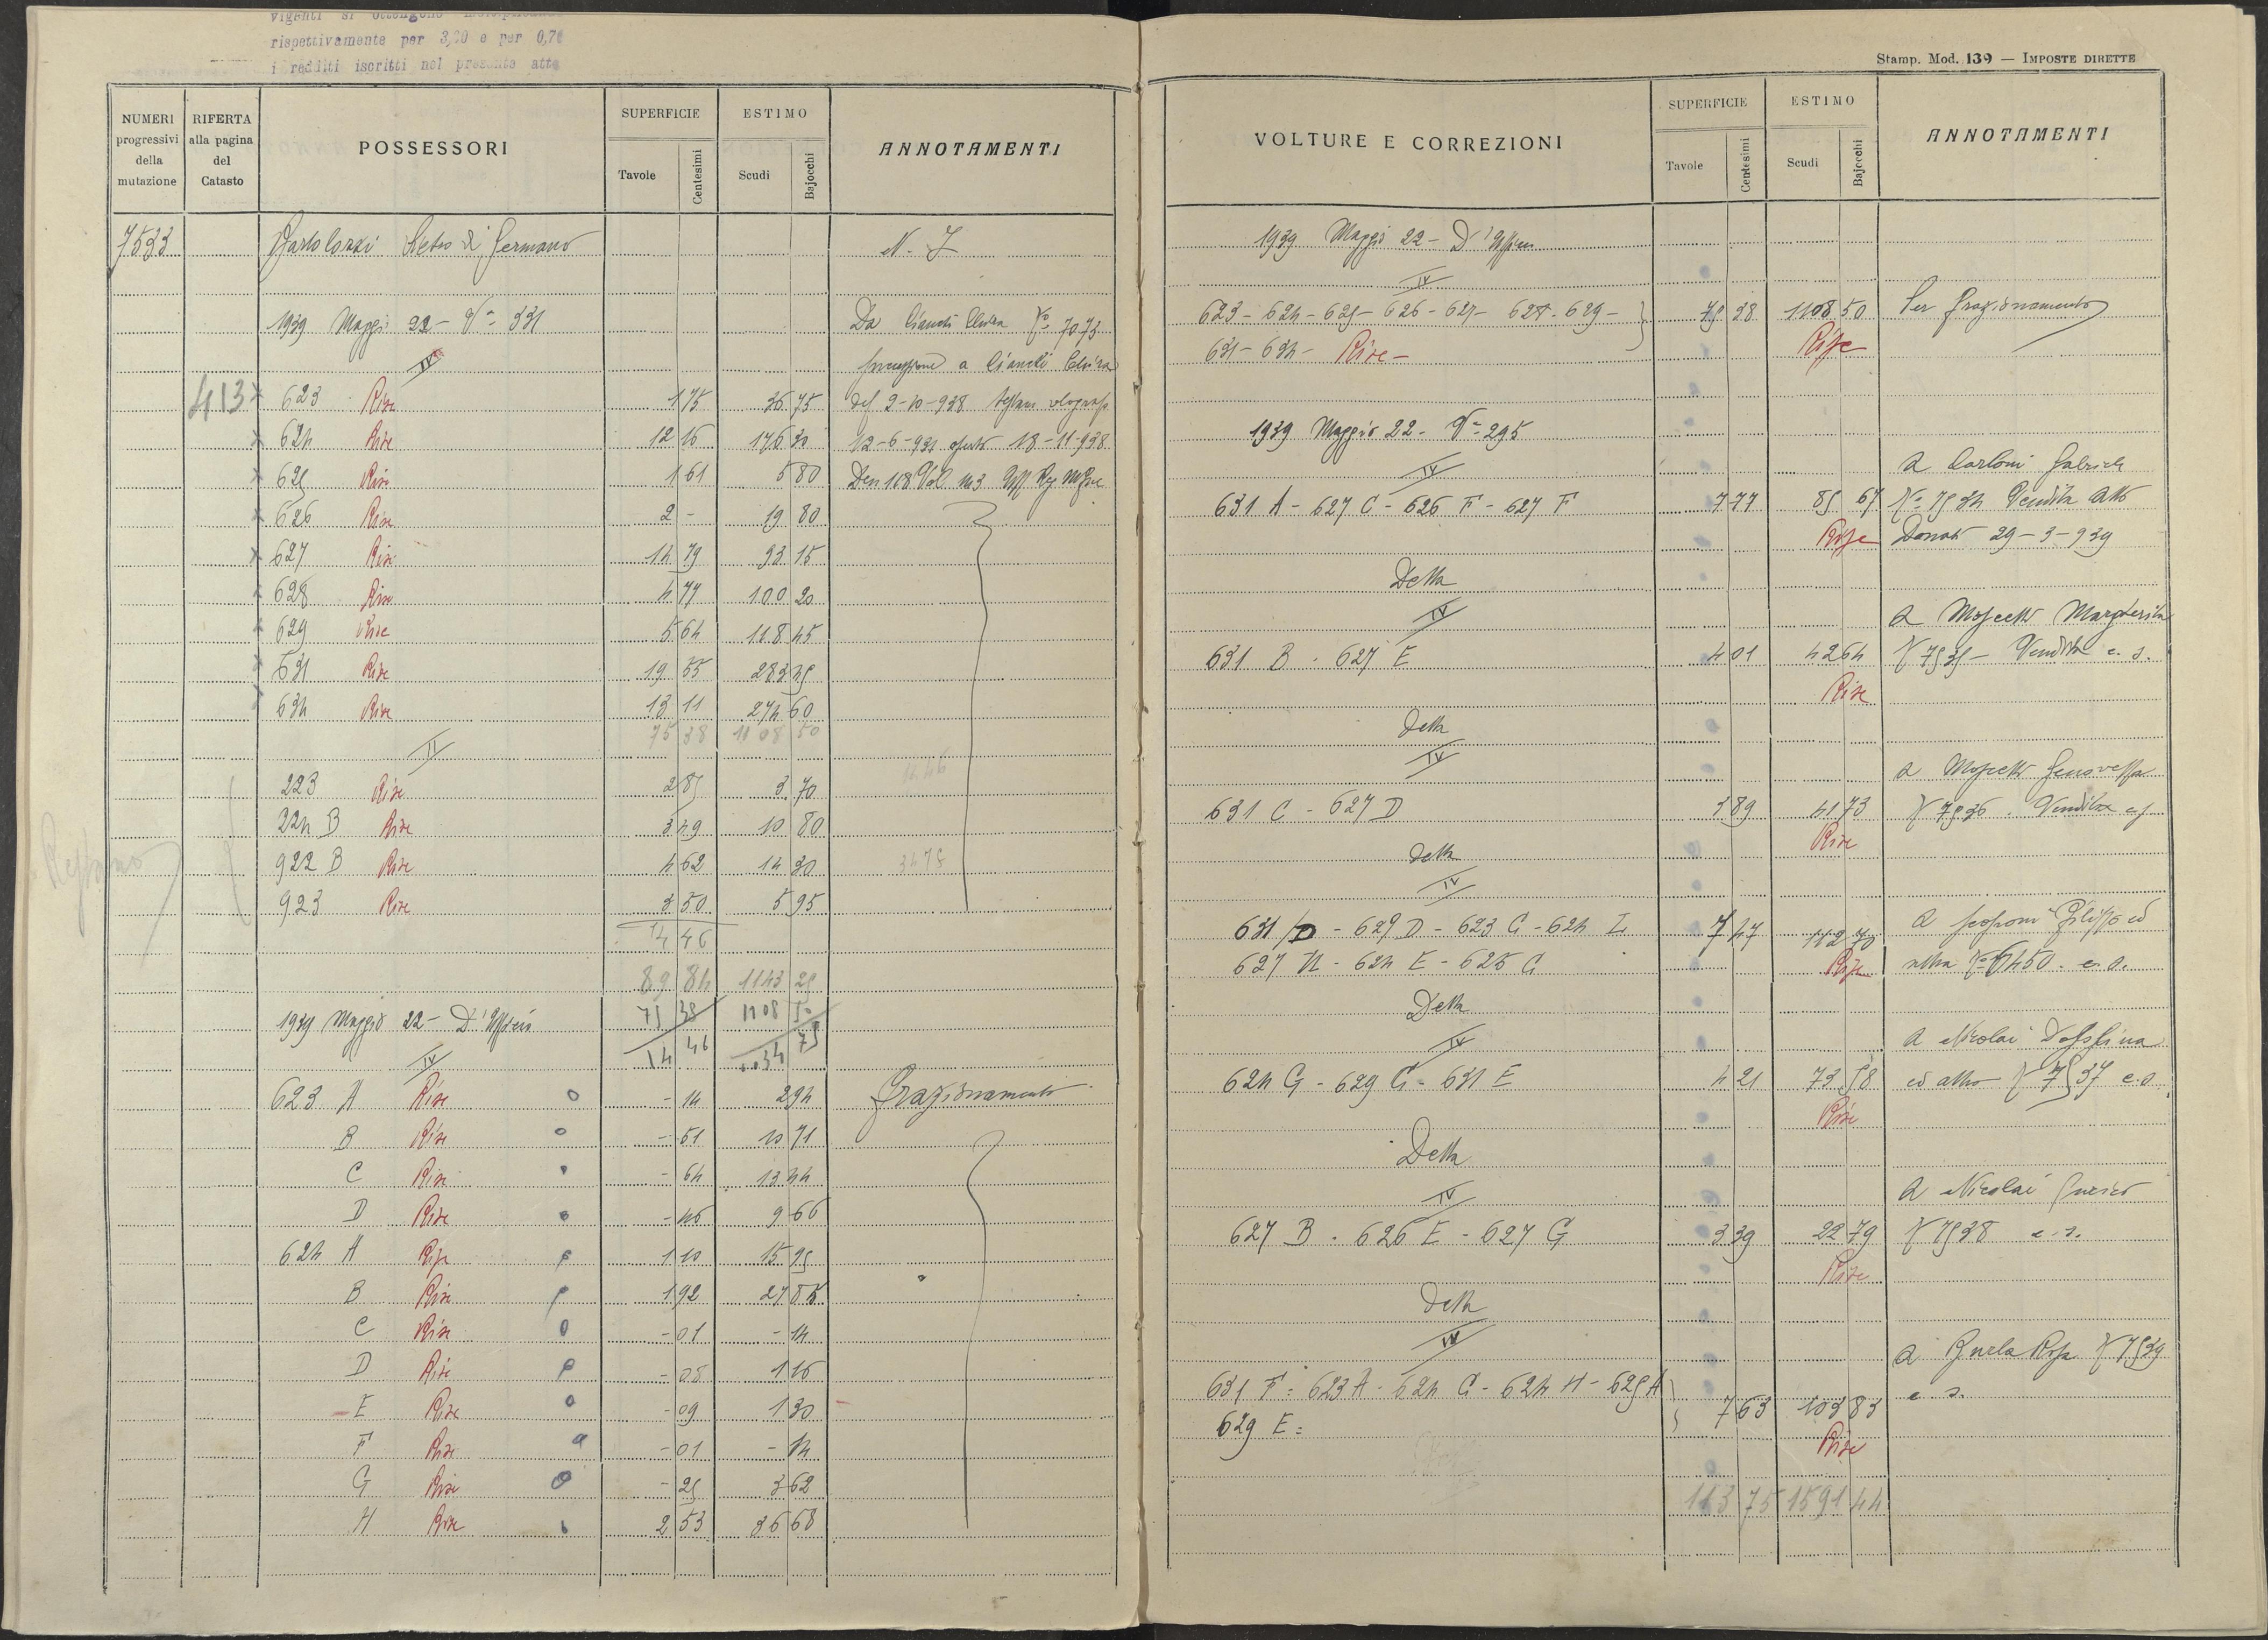 rispettivamente per 3,20 e per 0,70
i redditi iscritti nel presente atto
NUMERI progressivi della mutazione
RIFERTA alla pagina del Catasto
POSSESSORI
SUPERFICIE
Tavole
Centesimi
ESTIMO
Scudi
Bajocchi
ANNOTAMENTI
7533 Bartolozzi Pietro di Germano N. I
1939 Maggio 22 - Va 331 Da Cianchi No 7073
IV a Cianchi Elvira
413 623 Rise 1 75 36 75 del 2-10-938
624 Rise 12 16 176 30 12-6-931 18-11-938
625 Rise 1 61 5 80 Den 168 Vol 113
626 Rise 2 - 19 80
627 Rise 14 79 93 15
628 Rise 4 77 100 20
629 Rise 5 64 118 45
631 Rise 19 55 283 45
634 Rise 13 11 274 60
75 38 1108 50
II
223 Rise 2 85 3 70
224 B Rise 3 49 10 80
922 B Rise 4 62 14 30 3478
923 Rise 3 50 5 95
14 46
89 84 1143 25
1939 Maggio 22 - D'Ufficio 75 38 1108 50
IV 14 46 34 75
623 A Rise - 14 2 94 Frazionamento
B Rise - 51 10 71
C Rise - 64 13 44
D Rise - 46 9 66
624 A Rise 1 10 15 95
B Rise 1 92 27 85
C Rise - 01 - 14
D Rise - 08 1 16
E Rise - 09 1 30
F Rise - 01 - 14
G Rise - 25 3 62
H Rise 2 53 36 68
Stamp. Mod. 139 — IMPOSTE DIRETTE
VOLTURE E CORREZIONI
SUPERFICIE
Tavole
Centesimi
ESTIMO
Scudi
Bajocchi
ANNOTAMENTI
1939 Maggio 22 - D'Ufficio
IV
623 - 624 - 625 - 626 - 627 - 628 - 629 - 75 38 1108 50 Per frazionamento
631 - 634 - Rise - Rise
1939 Maggio 22 - Va 295
IV A Carloni Gabriele
631 A - 627 C - 626 F - 627 F 7 77 85 67 No 7534 Vendita Atto
Rise Donati 29-3-939
Detta
IV A Margherita
631 B - 627 E 4 01 42 64 No 7535 - Vendita c. s.
Rise
Detta
IV A Genoveffa
631 C - 627 D 3 89 41 73 No 7536. Vendita c. s.
Rise
Detta
IV
631 D - 629 D - 623 C - 624 L 7 47 112 70 A ed
627 H - 624 E - 625 C Rise altra No 6450. c. s.
Detta
IV A Nicolai
624 G - 629 G - 631 E 4 21 73 58 ed altro No 7537 c. s.
Rise
Detta
IV A Nicolai Enrico
627 B - 626 E - 627 G 3 39 22 79 No 7538 c. s.
Rise
Detta
IV A Rosa No 7539
631 F = 623 A - 624 C - 624 H - 625 A c. s.
629 E = 7 63 103 83
Rise
113 75 1591 44